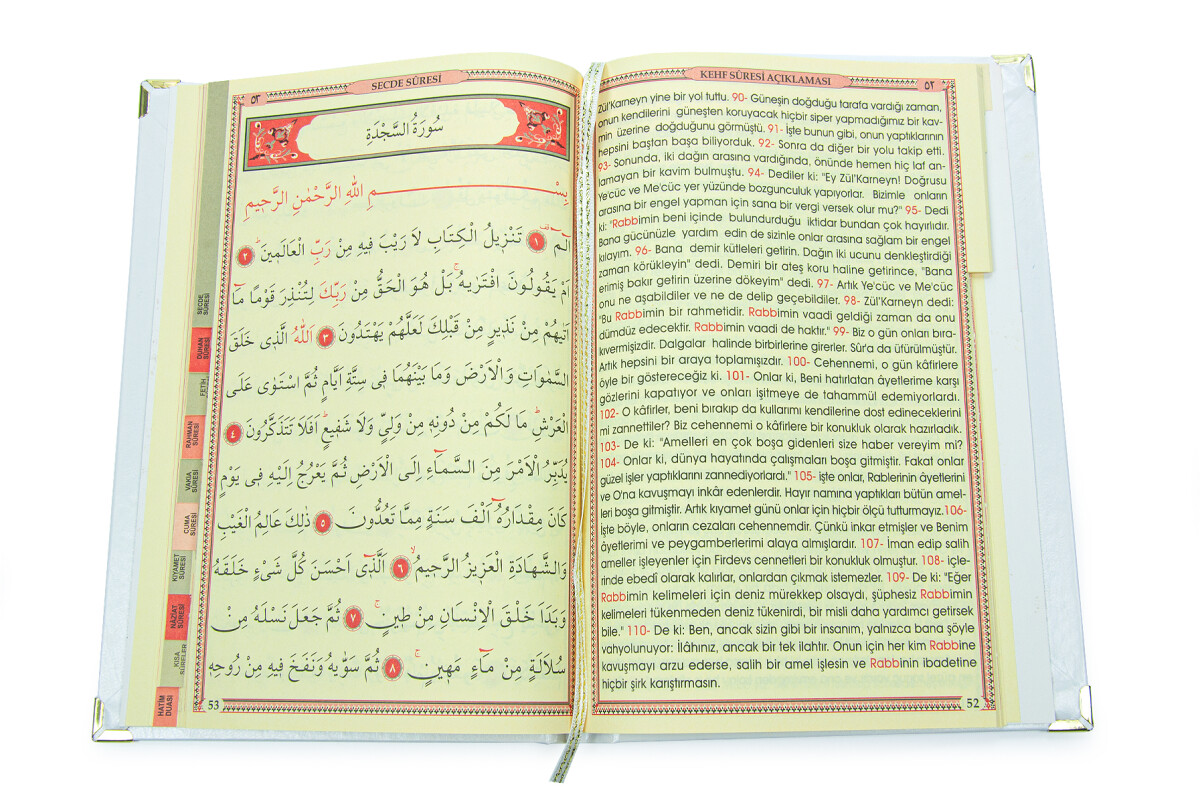 KEHF SÛRESİ AÇIKLAMASI
٥٢
Zül'Karneyn yine bir yol tuttu. 90- Güneşin doğduğu tarafa vardığı zaman,
onun kendilerini güneşten koruyacak hiçbir siper yapmadığımız bir kav-
min üzerine doğduğunu görmüştü. 91- İşte bunun gibi, onun yaptıklarının
hepsini baştan başa biliyorduk. 92- Sonra da diğer bir yolu takip etti.
93- Sonunda, iki dağın arasına vardığında, önünde hemen hiç laf an-
lamayan bir kavim bulmuştu. 94- Dediler ki: "Ey Zül'Karneyn! Doğrusu
Ye'cüc ve Me'cüc yer yüzünde bozgunculuk yapıyorlar. Bizimle onların
arasına bir engel yapman için sana bir vergi versek olur mu?" 95- Dedi
ki: "Rabbimin beni içinde bulundurduğu iktidar bundan çok hayırlıdır.
Bana gücünüzle yardım edin de sizinle onlar arasına sağlam bir engel
kılayım. 96- Bana demir kütleleri getirin. Dağın iki ucunu denkleştirdiği
zaman körükleyin" dedi. Demiri bir ateş koru haline getirince, "Bana
erimiş bakır getirin üzerine dökeyim" dedi. 97- Artık Ye'cüc ve Me'cüc
onu ne aşabildiler ve ne de delip geçebildiler. 98- Zül'Karneyn dedi:
"Bu Rabbimin bir rahmetidir. Rabbimin vaadi geldiği zaman da onu
dümdüz edecektir. Rabbimin vaadi de haktır." 99- Biz o gün onları bıra-
kıvermişizdir. Dalgalar halinde birbirlerine girerler. Sûr'a da üfürülmüştür.
Artık hepsini bir araya toplamışızdır. 100- Cehennemi, o gün kâfirlere
öyle bir göstereceğiz ki. 101- Onlar ki, Beni hatırlatan âyetlerime karşı
gözlerini kapatıyor ve onları işitmeye de tahammül edemiyorlardı.
102- O kâfirler, beni bırakıp da kullarımı kendilerine dost edineceklerini
mi zannettiler? Biz cehennemi o kâfirlere bir konukluk olarak hazırladık.
103- De ki: "Amelleri en çok boşa gidenleri size haber vereyim mi?
104- Onlar ki, dünya hayatında çalışmaları boşa gitmiştir. Fakat onlar
güzel işler yaptıklarını zannediyorlardı." 105- işte onlar, Rablerinin âyetlerini
ve O'na kavuşmayı inkâr edenlerdir. Hayır namına yaptıkları bütün amel-
leri boşa gitmiştir. Artık kıyamet günü onlar için hiçbir ölçü tutturmayız.106-
İşte böyle, onların cezaları cehennemdir. Çünkü inkar etmişler ve Benim
âyetlerimi ve peygamberlerimi alaya almışlardır. 107- İman edip salih
ameller işleyenler için Firdevs cennetleri bir konukluk olmuştur. 108- içle-
rinde ebedî olarak kalırlar, onlardan çıkmak istemezler. 109- De ki: "Eğer
Rabbimin kelimeleri için deniz mürekkep olsaydı, şüphesiz Rabbimin
kelimeleri tükenmeden deniz tükenirdi, bir misli daha yardımcı getirsek
bile." 110- De ki: Ben, ancak sizin gibi bir insanım, yalnızca bana şöyle
vahyolunuyor: İlâhınız, ancak bir tek ilahtır. Onun için her kim Rabbine
kavuşmayı arzu ederse, salih bir amel işlesin ve Rabbinin ibadetine
hiçbir şirk karıştırmasın.
52
٥٣
SECDE SÛRESİ
سُورَةُ السَّجْدَةِ
بِسْمِ اللّٰهِ الرَّحْمٰنِ الرَّحٖيمِ
الٓمٓ ۚ ١ تَنْزٖيلُ الْكِتَابِ لَا رَيْبَ فٖيهِ مِنْ رَبِّ الْعَالَمٖينَ ؕ ٢
اَمْ يَقُولُونَ افْتَرٰيهُ ۚ بَلْ هُوَ الْحَقُّ مِنْ رَبِّكَ لِتُنْذِرَ قَوْمًا مَٓا
اَتٰيهُمْ مِنْ نَذٖيرٍ مِنْ قَبْلِكَ لَعَلَّهُمْ يَهْتَدُونَ ٣ اَللّٰهُ الَّذٖى خَلَقَ
السَّمٰوَاتِ وَالْاَرْضَ وَمَا بَيْنَهُمَا فٖى سِتَّةِ اَيَّامٍ ثُمَّ اسْتَوٰى عَلَى
الْعَرْشِ ؕ مَا لَكُمْ مِنْ دُونِهٖ مِنْ وَلِىٍّ وَلَا شَفٖيعٍ ؕ اَفَلَا تَتَذَكَّرُونَ ٤
يُدَبِّرُ الْاَمْرَ مِنَ السَّمَٓاءِ اِلَى الْاَرْضِ ثُمَّ يَعْرُجُ اِلَيْهِ فٖى يَوْمٍ
كَانَ مِقْدَارُهُٓ اَلْفَ سَنَةٍ مِمَّا تَعُدُّونَ ٥ ذٰلِكَ عَالِمُ الْغَيْبِ
وَالشَّهَادَةِ الْعَزٖيزُ الرَّحٖيمُ ۙ ٦ اَلَّذٖٓى اَحْسَنَ كُلَّ شَىْءٍ خَلَقَهُ
وَبَدَاَ خَلْقَ الْاِنْسَانِ مِنْ طٖينٍ ۚ ٧ ثُمَّ جَعَلَ نَسْلَهُ مِنْ
سُلَالَةٍ مِنْ مَٓاءٍ مَهٖينٍ ۚ ٨ ثُمَّ سَوّٰيهُ وَنَفَخَ فٖيهِ مِنْ رُوحِهٖ
53
SECDE
SÛRESİ
DUHAN
SÛRESİ
FETİH
RAHMAN
SÛRESİ
VAKIA
SÛRESİ
CUMA
SÛRESİ
KIYAMET
SÛRESİ
NÂZİAT
SÛRESİ
KISA
SÛRELER
HATİM
DUASI